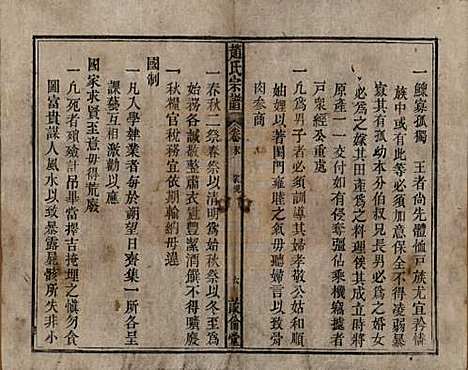 一鰥寡孤獨 王者尚先體恤戶族尤宜矜情
一戶族有此等者必須加意保全不得凌弱暴
寡其有孤幼本分伯叔兄長男必爲之婚女
必爲之嫁其田產爲之料理俟其成立時將
原產一一交付如有侵奪強佔乘機竊據者
戶衆經公重處
一凡爲男子者必須訓導其婦孝敬公姑和順
妯娌以著閨門雍睦之氣毋聽婦言以致骨
肉參商
趙氏宗譜
卷末
家規
六
敦倫堂
一春秋二祭春祭以清明爲始秋祭以冬至爲
始務各誠敬整肅衣冠豐潔酒饌不得曠廢
一秋糧官稅務宜依期輸納毋違
國制
一凡入學肄業者每於朔望日齊集一所各呈
課藝互相激勸以應
國家求賢至意毋得荒廢
一凡死者殯殮計吊畢當擇吉掩埋之慎勿貪
圖富貴謀人風水以致暴露屍骸所失非小